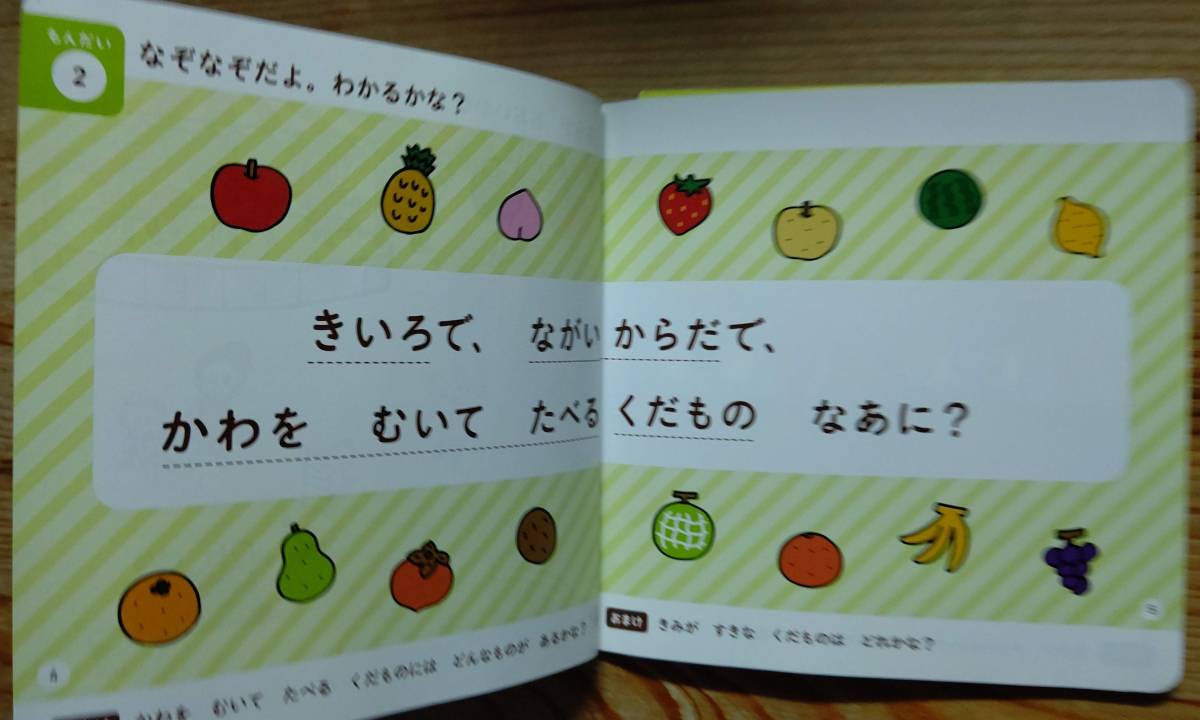 もんだい
2
なぞなぞだよ。わかるかな？
きいろで、 ながい からだで、
かわを むいて たべる くだもの なあに？
むいて たべる くだものには どんなものが あるかな？
おまけ きみが すきな くだものは どれかな？